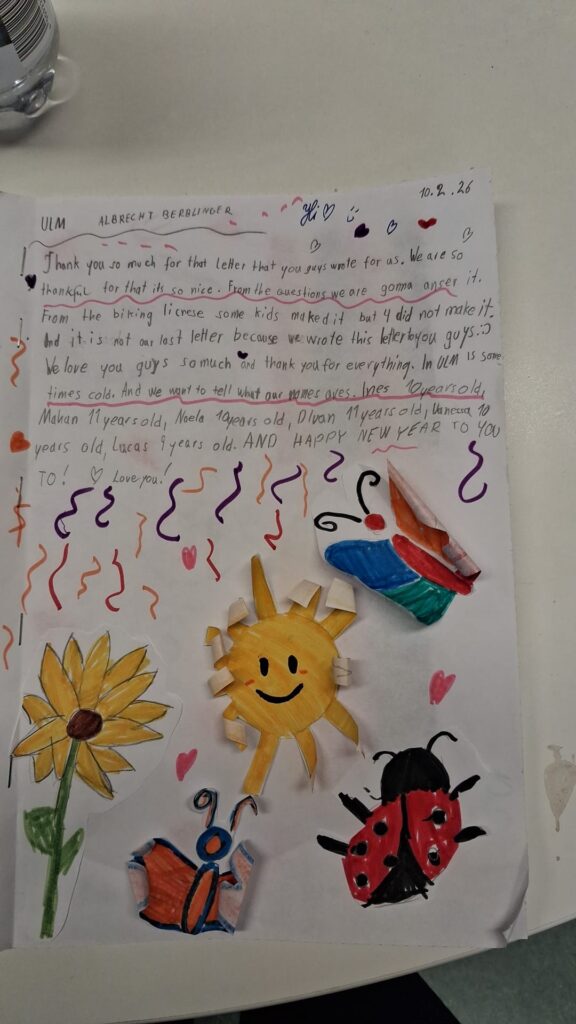 10.2.26
ULM ALBRECHT BERBLINGER Hi
Thank you so much for that letter that you guys wrote for us. We are so
thankful for that its so nice. From the questions we are gonna anser it.
From the biking licrese some kids maked it but 4 did not make it.
And it is not our last letter because we wrote this letter to you guys.:)
We love you guys so much and thank you for everything. In ULM is some
times cold. And we want to tell what our names aves. Ines 10 years old,
Mahan 11 years old, Noela 10 years old, Divan 11 years old, Vanessa 10
years old, Lucas 9 years old. AND HAPPY NEW YEAR TO YOU
TO! Love you!